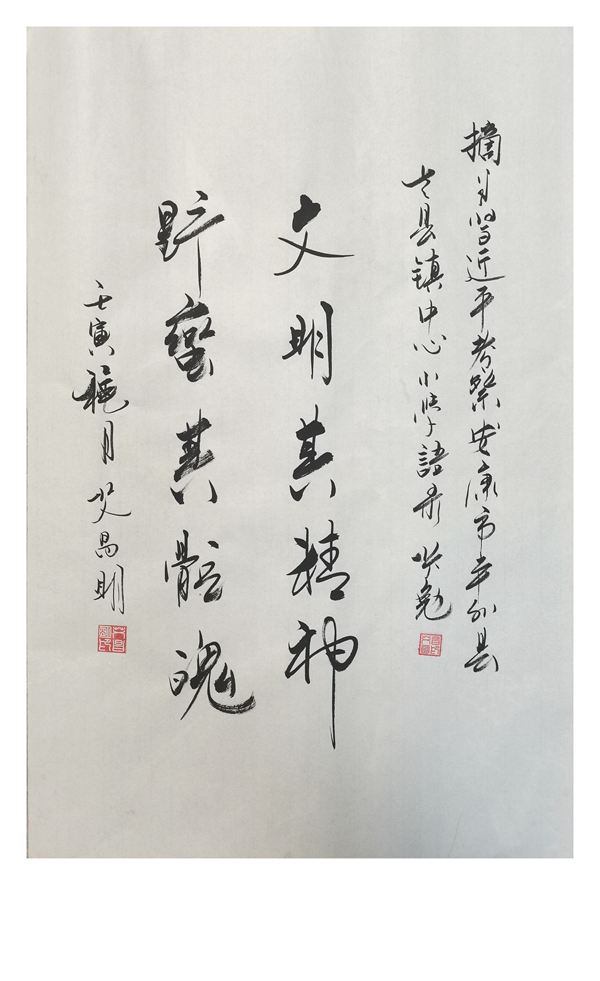 摘自習近平考察安康市平利县
老县镇中心小学語 共勉
文明其精神
野蛮其體魄
壬寅穐月 艾昌明